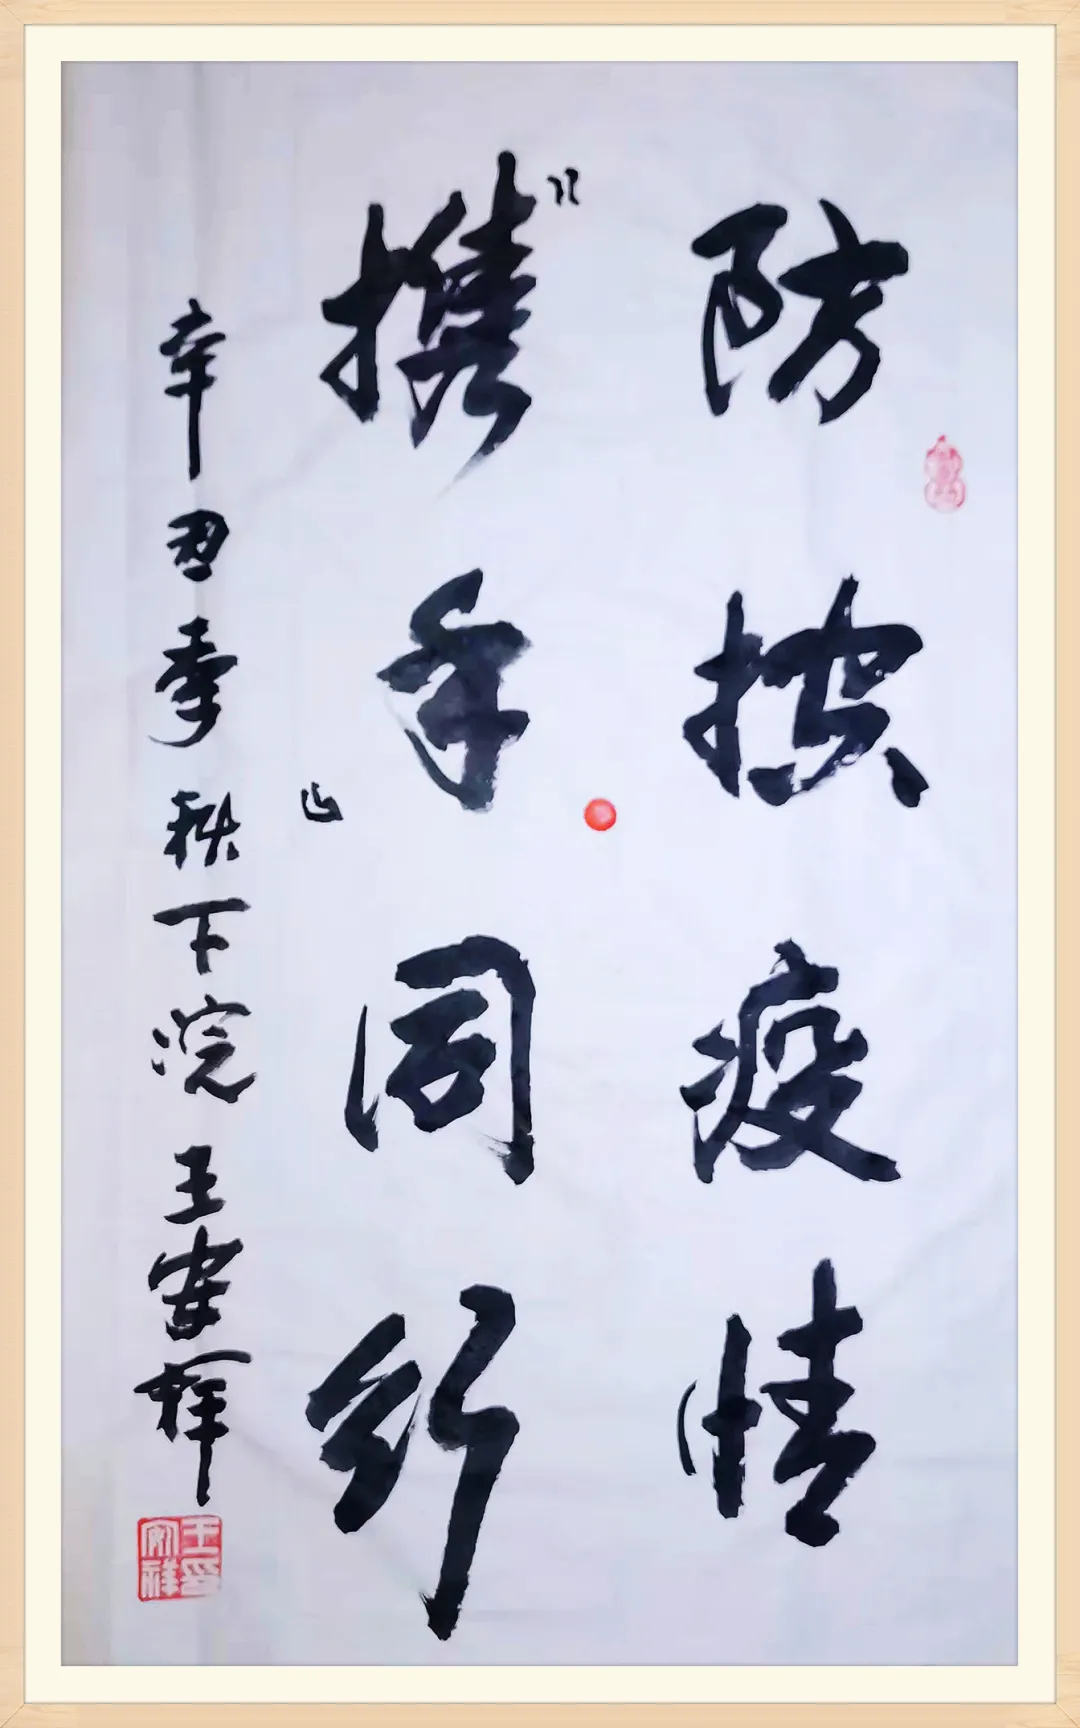 防控疫情
携手同行
辛丑季秋下浣王安祥
王安祥印